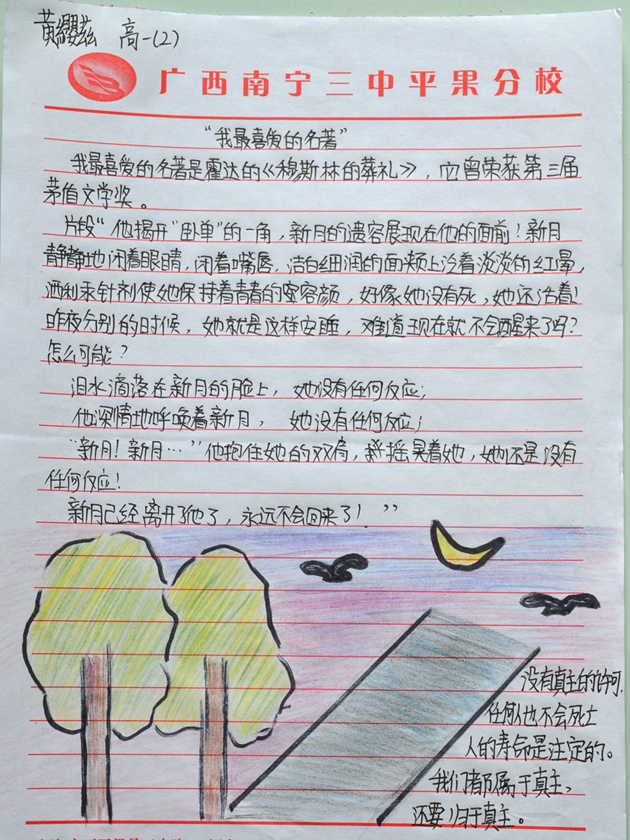 黄缨兹 高一(2)
广西南宁三中平果分校
“我最喜爱的名著”
我最喜爱的名著是霍达的《穆斯林的葬礼》，它曾荣获第三届
茅盾文学奖。
片段“他揭开“卧单”的一角，新月的遗容展现在他的面前！新月
静静地闭着眼睛，闭着嘴唇，洁白细润的面颊上泛着淡淡的红晕，
洒利汞针剂使她保持着青春的蜜容颜，好像她没有死，她还活着！
昨夜分别的时候，她就是这样安睡，难道现在就不会醒来了吗？
怎么可能？
泪水滴落在新月的脸上，她没有任何反应；
他深情地呼唤着新月，她没有任何反应；
“新月！新月…”他抱住她的双肩，摇晃着她，她还是没有
任何反应！
新月已经离开了他了，永远不会回来了！”
没有真主的许可，
任何人也不会死亡
人的寿命是注定的。
我们都属于真主，
还要归于真主。